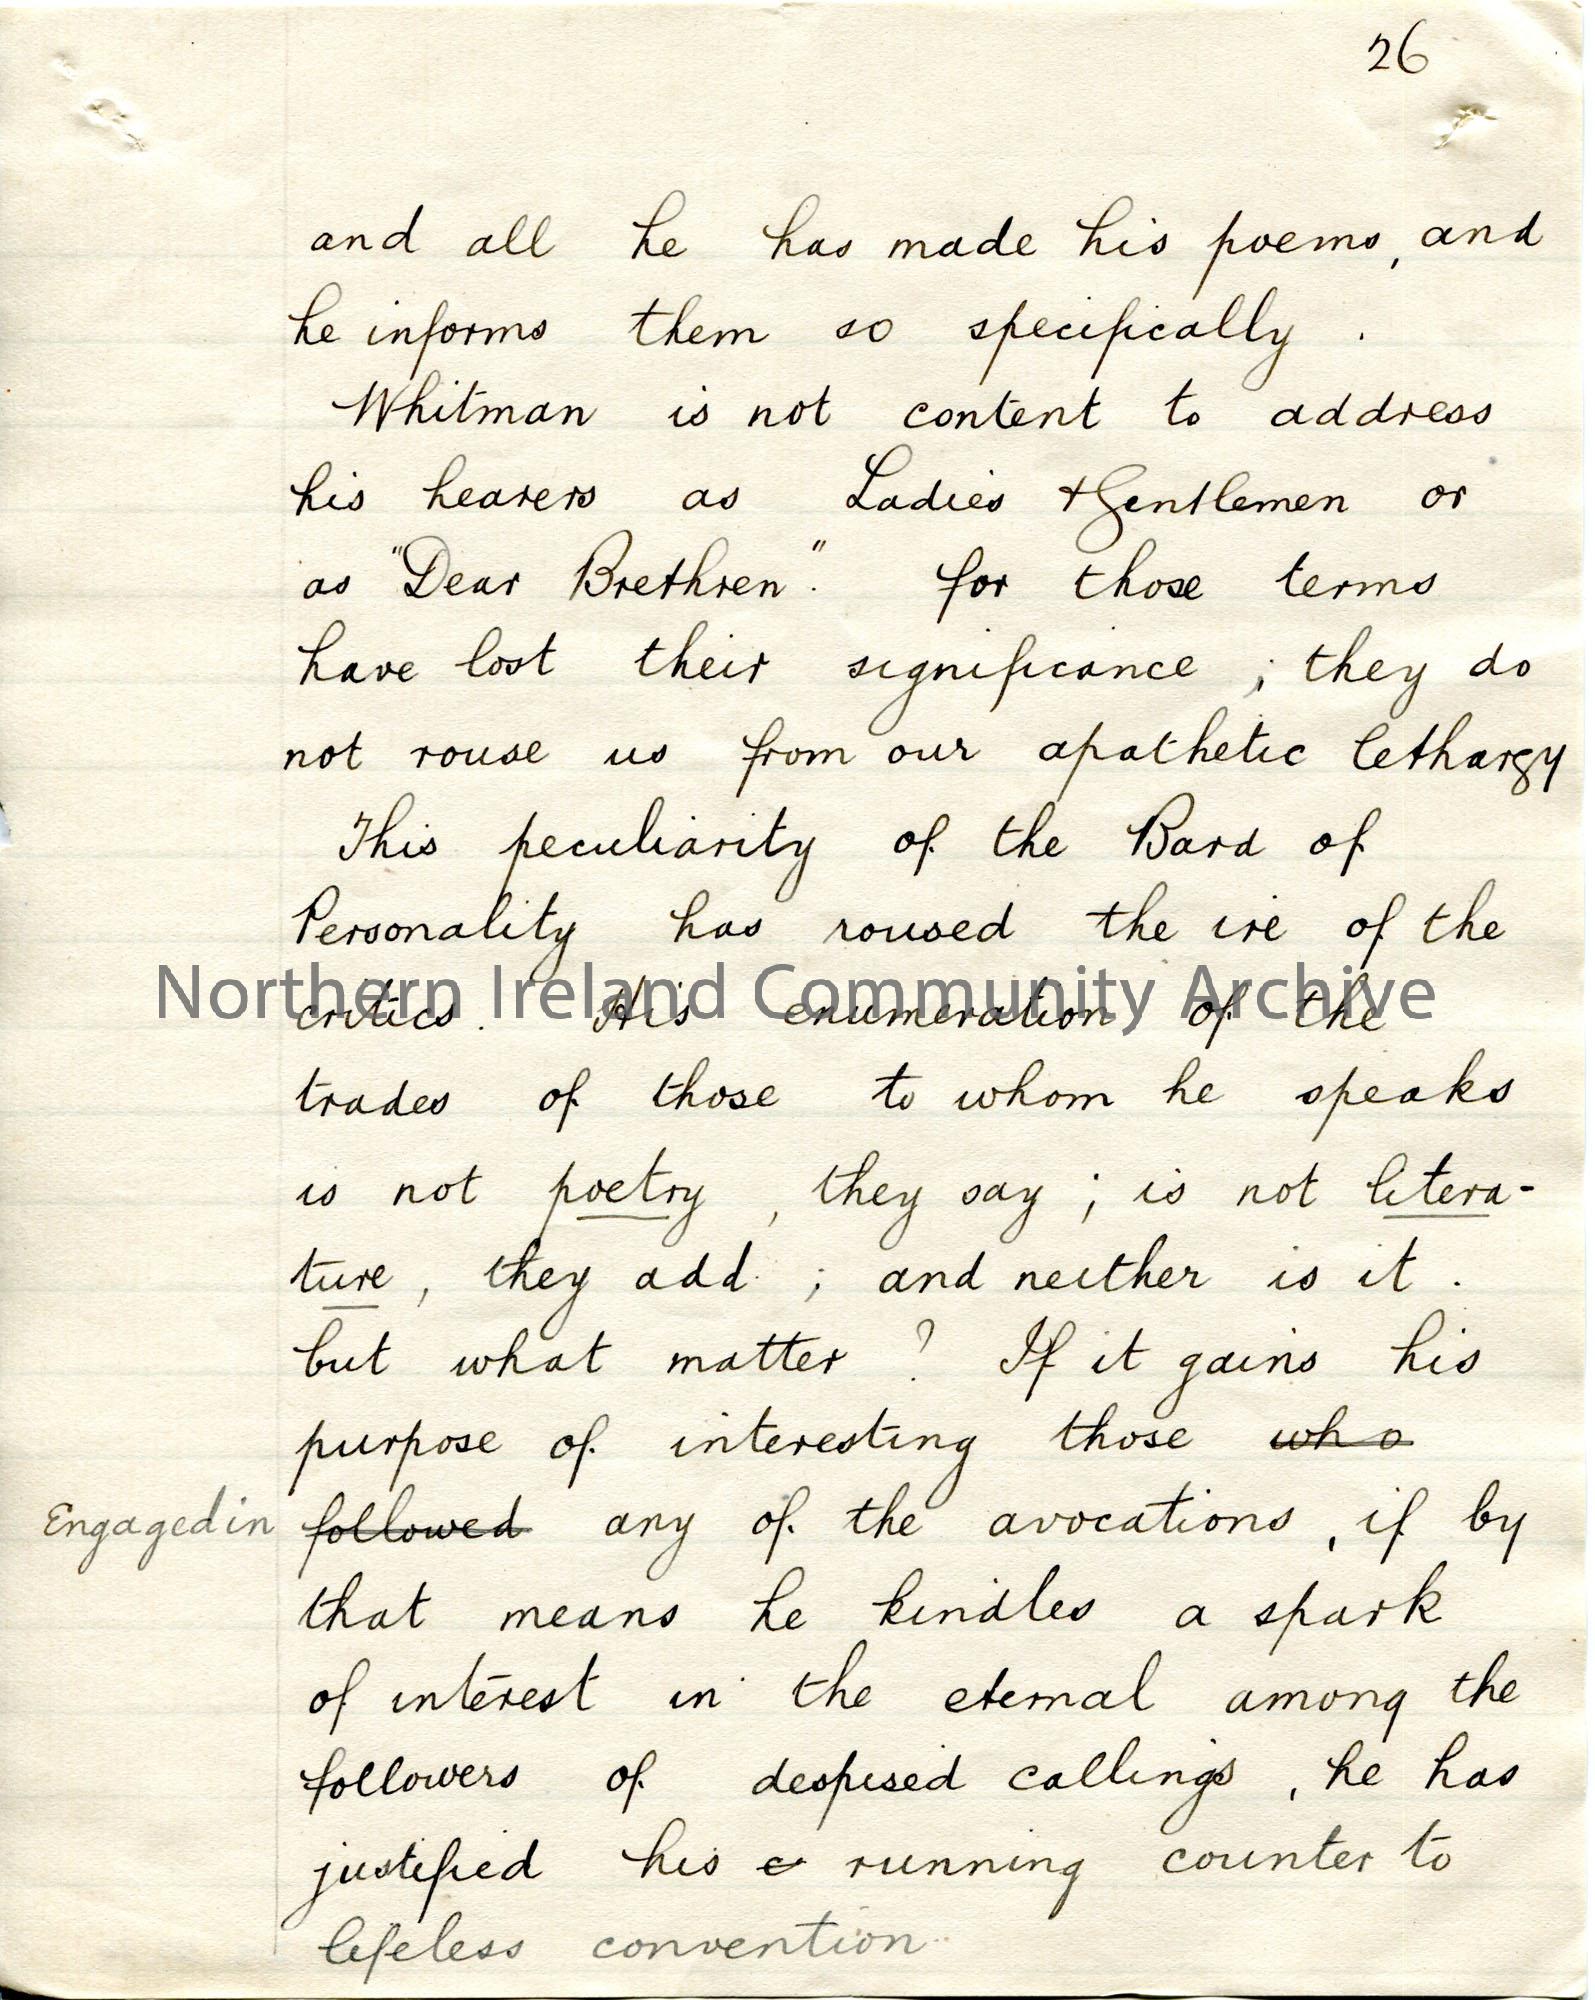 26
and all he has made his poems, and
he informs them so specifically .
Whitman is not content to address
his hearers as Ladies & Gentlemen or
as "Dear Brethren". for those terms
have lost their significance ; they do
not rouse us from our apathetic lethargy
This peculiarity of the Bard of
Personality has roused the ire of the
Northern Ireland Community Archive
critics. His enumeration of the
trades of those to whom he speaks
is not poetry , they say ; is not litera-
ture , they add ; and neither is it .
but what matter ? If it gains his
purpose of interesting those who
Engaged in followed any of the avocations , if by
that means he kindles a spark
of interest in the eternal among the
followers of despised callings , he has
justified his c running counter to
lifeless convention